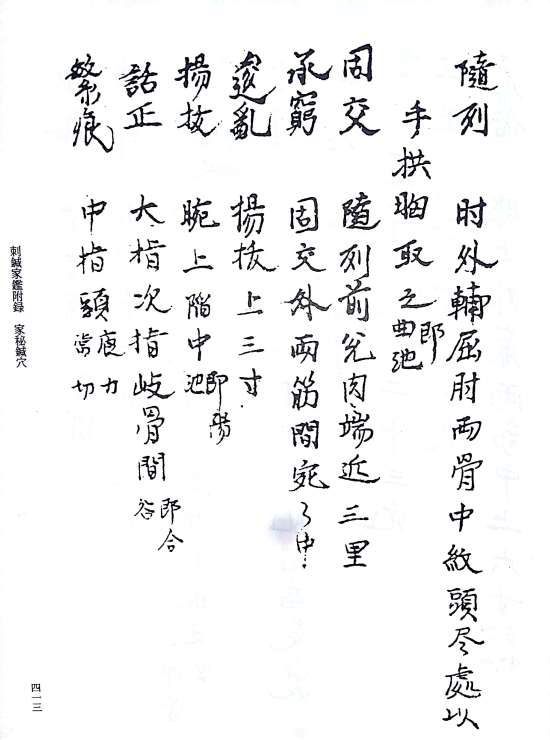 隨列　肘外輔屈肘両骨中紋頭尽處以
手拱胸取之即曲池
固交　隨列前兌肉端近三里
承窮　固交外両筋間宛々中
逡亂　揚拔上三寸
揚拔　腕上陷中即陽池
話正　大指次指岐骨間即合谷
繁痕　中指頭
刺鍼家鑑附録　家秘鍼穴
四一三